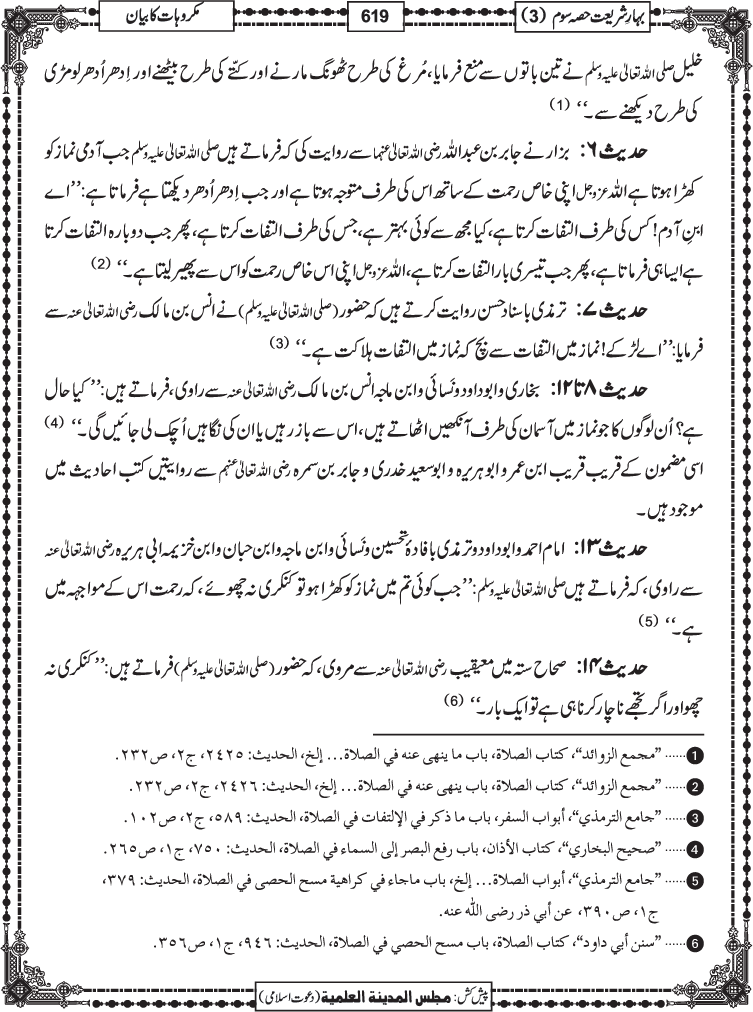 بہارِ شریعت حصہ سوم (3)
619
مکروہات کا بیان
خلیل صلی اللہ تعالیٰ علیہ وسلم نے تین باتوں سے منع فرمایا، مُرغ کی طرح ٹھونگ مارنے اور کتّے کی طرح بیٹھنے اور اِدھر اُدھر لومڑی
کی طرح دیکھنے سے۔‘‘ (1)
حدیث ۶: بزار نے جابر بن عبداللہ رضی اللہ تعالیٰ عنہما سے روایت کی کہ فرماتے ہیں صلی اللہ تعالیٰ علیہ وسلم جب آدمی نماز کو
کھڑا ہوتا ہے اللہ عزوجل اپنی خاص رحمت کے ساتھ اس کی طرف متوجہ ہوتا ہے اور جب اِدھر اُدھر دیکھتا ہے فرماتا ہے: ’’اے
ابنِ آدم! کس کی طرف التفات کرتا ہے، کیا مجھ سے کوئی بہتر ہے، جس کی طرف التفات کرتا ہے، پھر جب دوبارہ التفات کرتا
ہے ایسا ہی فرماتا ہے، پھر جب تیسری بار التفات کرتا ہے، اللہ عزوجل اپنی اس خاص رحمت کو اس سے پھیر لیتا ہے۔‘‘ (2)
حدیث ۷: ترمذی باسناد حسن روایت کرتے ہیں کہ حضور (صلی اللہ تعالیٰ علیہ وسلم) نے انس بن مالک رضی اللہ تعالیٰ عنہ سے
فرمایا: ’’اے لڑکے! نماز میں التفات سے بچ کہ نماز میں التفات ہلاکت ہے۔‘‘ (3)
حدیث ۸ تا ۱۲: بخاری و ابو داود و نَسائی و ابن ماجہ انس بن مالک رضی اللہ تعالیٰ عنہ سے راوی، فرماتے ہیں: ’’کیا حال
ہے؟ اُن لوگوں کا جو نماز میں آسمان کی طرف آنکھیں اٹھاتے ہیں، اس سے باز رہیں یا ان کی نگاہیں اُچک لی جائیں گی۔‘‘ (4)
اسی مضمون کے قریب قریب ابن عمر و ابو ہریرہ و ابو سعید خدری و جابر بن سمرہ رضی اللہ تعالیٰ عنہم سے روایتیں کتب احادیث میں
موجود ہیں۔
حدیث ۱۳: امام احمد و ابو داود و ترمذی بافادۂ تحسین و نَسائی و ابن ماجہ و ابن حبان و ابن خزیمہ ابی ہریرہ رضی اللہ تعالیٰ عنہ
سے راوی، کہ فرماتے ہیں صلی اللہ تعالیٰ علیہ وسلم: ’’جب کوئی تم میں نماز کو کھڑا ہو تو کنکری نہ چھوئے، کہ رحمت اس کے مواجہہ میں
ہے۔‘‘ (5)
حدیث ۱۴: صحاح ستہ میں معیقیب رضی اللہ تعالیٰ عنہ سے مروی، کہ حضور (صلی اللہ تعالیٰ علیہ وسلم) فرماتے ہیں: ’’کنکری نہ
چھو اور اگر تجھے ناچار کرنا ہی ہے تو ایک بار۔‘‘ (6)
1 ...... ”مجمع الزوائد“، كتاب الصلاة، باب ما ينهى عنه في الصلاة... إلخ، الحديث: ٢٤٢٥، ج٢، ص٢٣٢.
2 ...... ”مجمع الزوائد“، كتاب الصلاة، باب ما ينهى عنه في الصلاة... إلخ، الحديث: ٢٤٢٦، ج٢، ص٢٣٢.
3 ...... ”جامع الترمذي“، أبواب السفر، باب ما ذكر في الإلتفات في الصلاة، الحديث: ٥٨٩، ج٢، ص١٠٢.
4 ...... ”صحيح البخاري“، كتاب الأذان، باب رفع البصر إلى السماء في الصلاة، الحديث: ٧٥٠، ج١، ص٢٦٥.
5 ...... ”جامع الترمذي“، أبواب الصلاة... إلخ، باب ماجاء في كراهية مسح الحصى في الصلاة، الحديث: ٣٧٩،
ج١، ص٣٩٠، عن أبي ذر رضى الله عنه.
6 ...... ”سنن أبي داود“، كتاب الصلاة، باب مسح الحصي في الصلاة، الحديث: ٩٤٦، ج١، ص٣٥٦.
پیش کش: مجلس المدینة العلمیة (دعوت اسلامی)